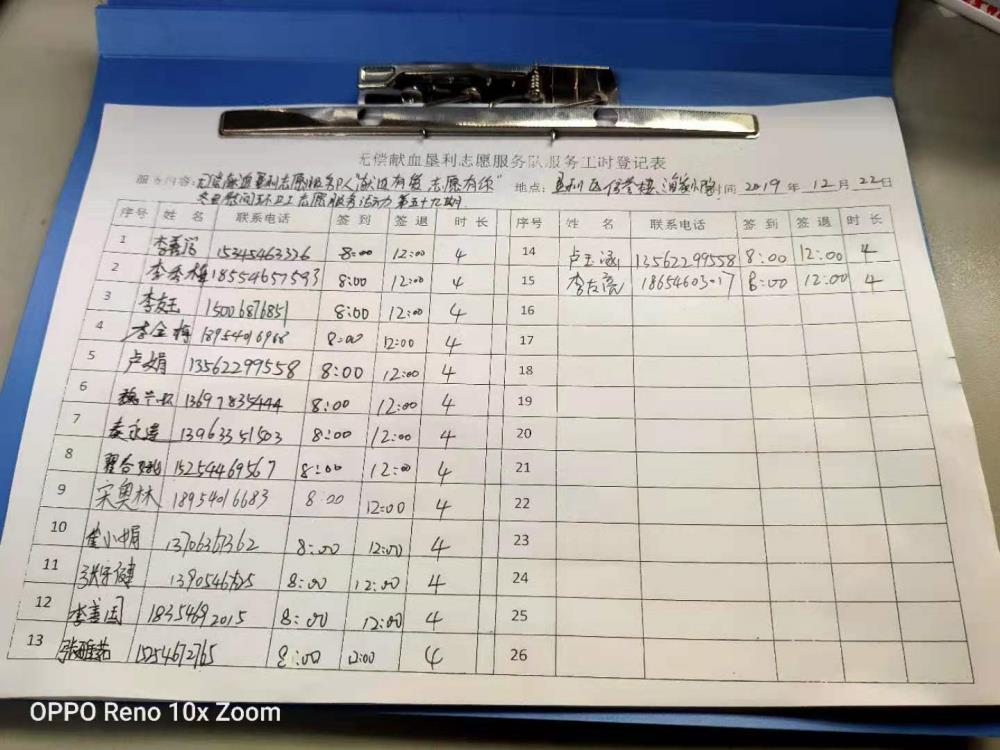 无偿献血垦利志愿服务队服务工时登记表
服务内容:无偿献血垦利志愿服务队"献血有爱 志愿有你" 地点:垦利区 时间 2019 年 12 月 22 日
冬至慰问环卫工志愿服务活动 第五十九期
序号 姓 名 联系电话 签 到 签 退 时 长 序号 姓 名 联系电话 签 到 签 退 时 长
1 15345463326 8:00 12:00 4 14 卢玉涵 13562299558 8:00 12:00 4
2 李秀梅 18554657593 8:00 12:00 4 15 8:00 12:00 4
3 李友玉 15006876851 8:00 12:00 4 16
4 李金梅 18954016968 8:00 12:00 4 17
5 卢娟 13562299558 8:00 12:00 4 18
6 13697835444 8:00 12:00 4 19
7 秦永建 13963351503 8:00 12:00 4 20
8 15254469567 8:00 12:00 4 21
9 宋奥林 18954016683 8:00 12:00 4 22
10 崔小娟 13706367362 8:00 12:00 4 23
11 8:00 12:00 4 24
12 李善国 18354692015 8:00 12:00 4 25
13 张雅茹 15254672765 8:00 12:00 4 26
OPPO Reno 10x Zoom